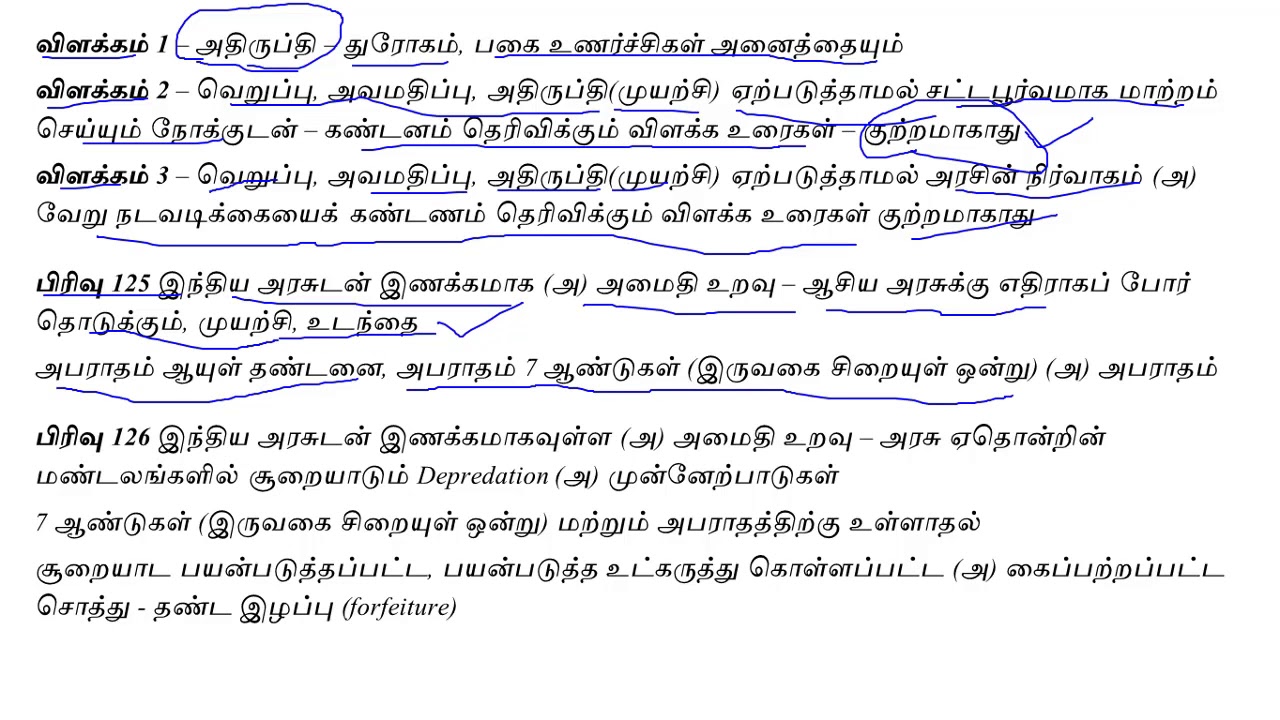 விளக்கம் 1 – அதிருப்தி – துரோகம், பகை உணர்ச்சிகள் அனைத்தையும்
விளக்கம் 2 – வெறுப்பு, அவமதிப்பு, அதிருப்தி(முயற்சி) ஏற்படுத்தாமல் சட்டபூர்வமாக மாற்றம்
செய்யும் நோக்குடன் – கண்டனம் தெரிவிக்கும் விளக்க உரைகள் – குற்றமாகாது
விளக்கம் 3 – வெறுப்பு, அவமதிப்பு, அதிருப்தி(முயற்சி) ஏற்படுத்தாமல் அரசின் நிர்வாகம் (அ)
வேறு நடவடிக்கையைக் கண்டணம் தெரிவிக்கும் விளக்க உரைகள் குற்றமாகாது
பிரிவு 125 இந்திய அரசுடன் இணக்கமாக (அ) அமைதி உறவு – ஆசிய அரசுக்கு எதிராகப் போர்
தொடுக்கும், முயற்சி, உடந்தை
அபராதம் ஆயுள் தண்டனை, அபராதம் 7 ஆண்டுகள் (இருவகை சிறையுள் ஒன்று) (அ) அபராதம்
பிரிவு 126 இந்திய அரசுடன் இணக்கமாகவுள்ள (அ) அமைதி உறவு – அரசு ஏதொன்றின்
மண்டலங்களில் சூறையாடும் Depredation (அ) முன்னேற்பாடுகள்
7 ஆண்டுகள் (இருவகை சிறையுள் ஒன்று) மற்றும் அபராதத்திற்கு உள்ளாதல்
சூறையாட பயன்படுத்தப்பட்ட, பயன்படுத்த உட்கருத்து கொள்ளப்பட்ட (அ) கைப்பற்றப்பட்ட
சொத்து - தண்ட இழப்பு (forfeiture)